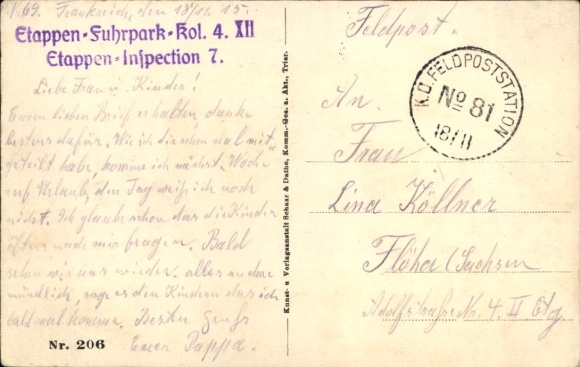 No 69. Frankreich, den 18/11. 15.
Etappen-Fuhrpark-Kol. 4. XII
Etappen-Inspection 7.
Liebe Frau u. Kinder!
Euren lieben Brief erhalten danke
bestens dafür. Wie ich dir schon mal mit-
geteilt habe, komme ich nächste Woche
auf Urlaub, den Tag weiß ich noch
nicht. Ich glaube schon das die Kinder
öfters nach mir fragen. Bald
sehen wir uns wieder. alles andere
mündlich, sage es den Kindern das ich
bald mal komme. Besten Gruß
Euer Pappa.
Nr. 206
Kunst- u. Verlagsanstalt Schaar & Dathe, Komm.-Ges. a. Akt., Trier.
Feldpost.
K.D. FELDPOSTSTATION
No 81
18/11
An
Frau
Lina Köllner
Flöha (Sachsen
Adolfstraße Nr. 4. II Etg